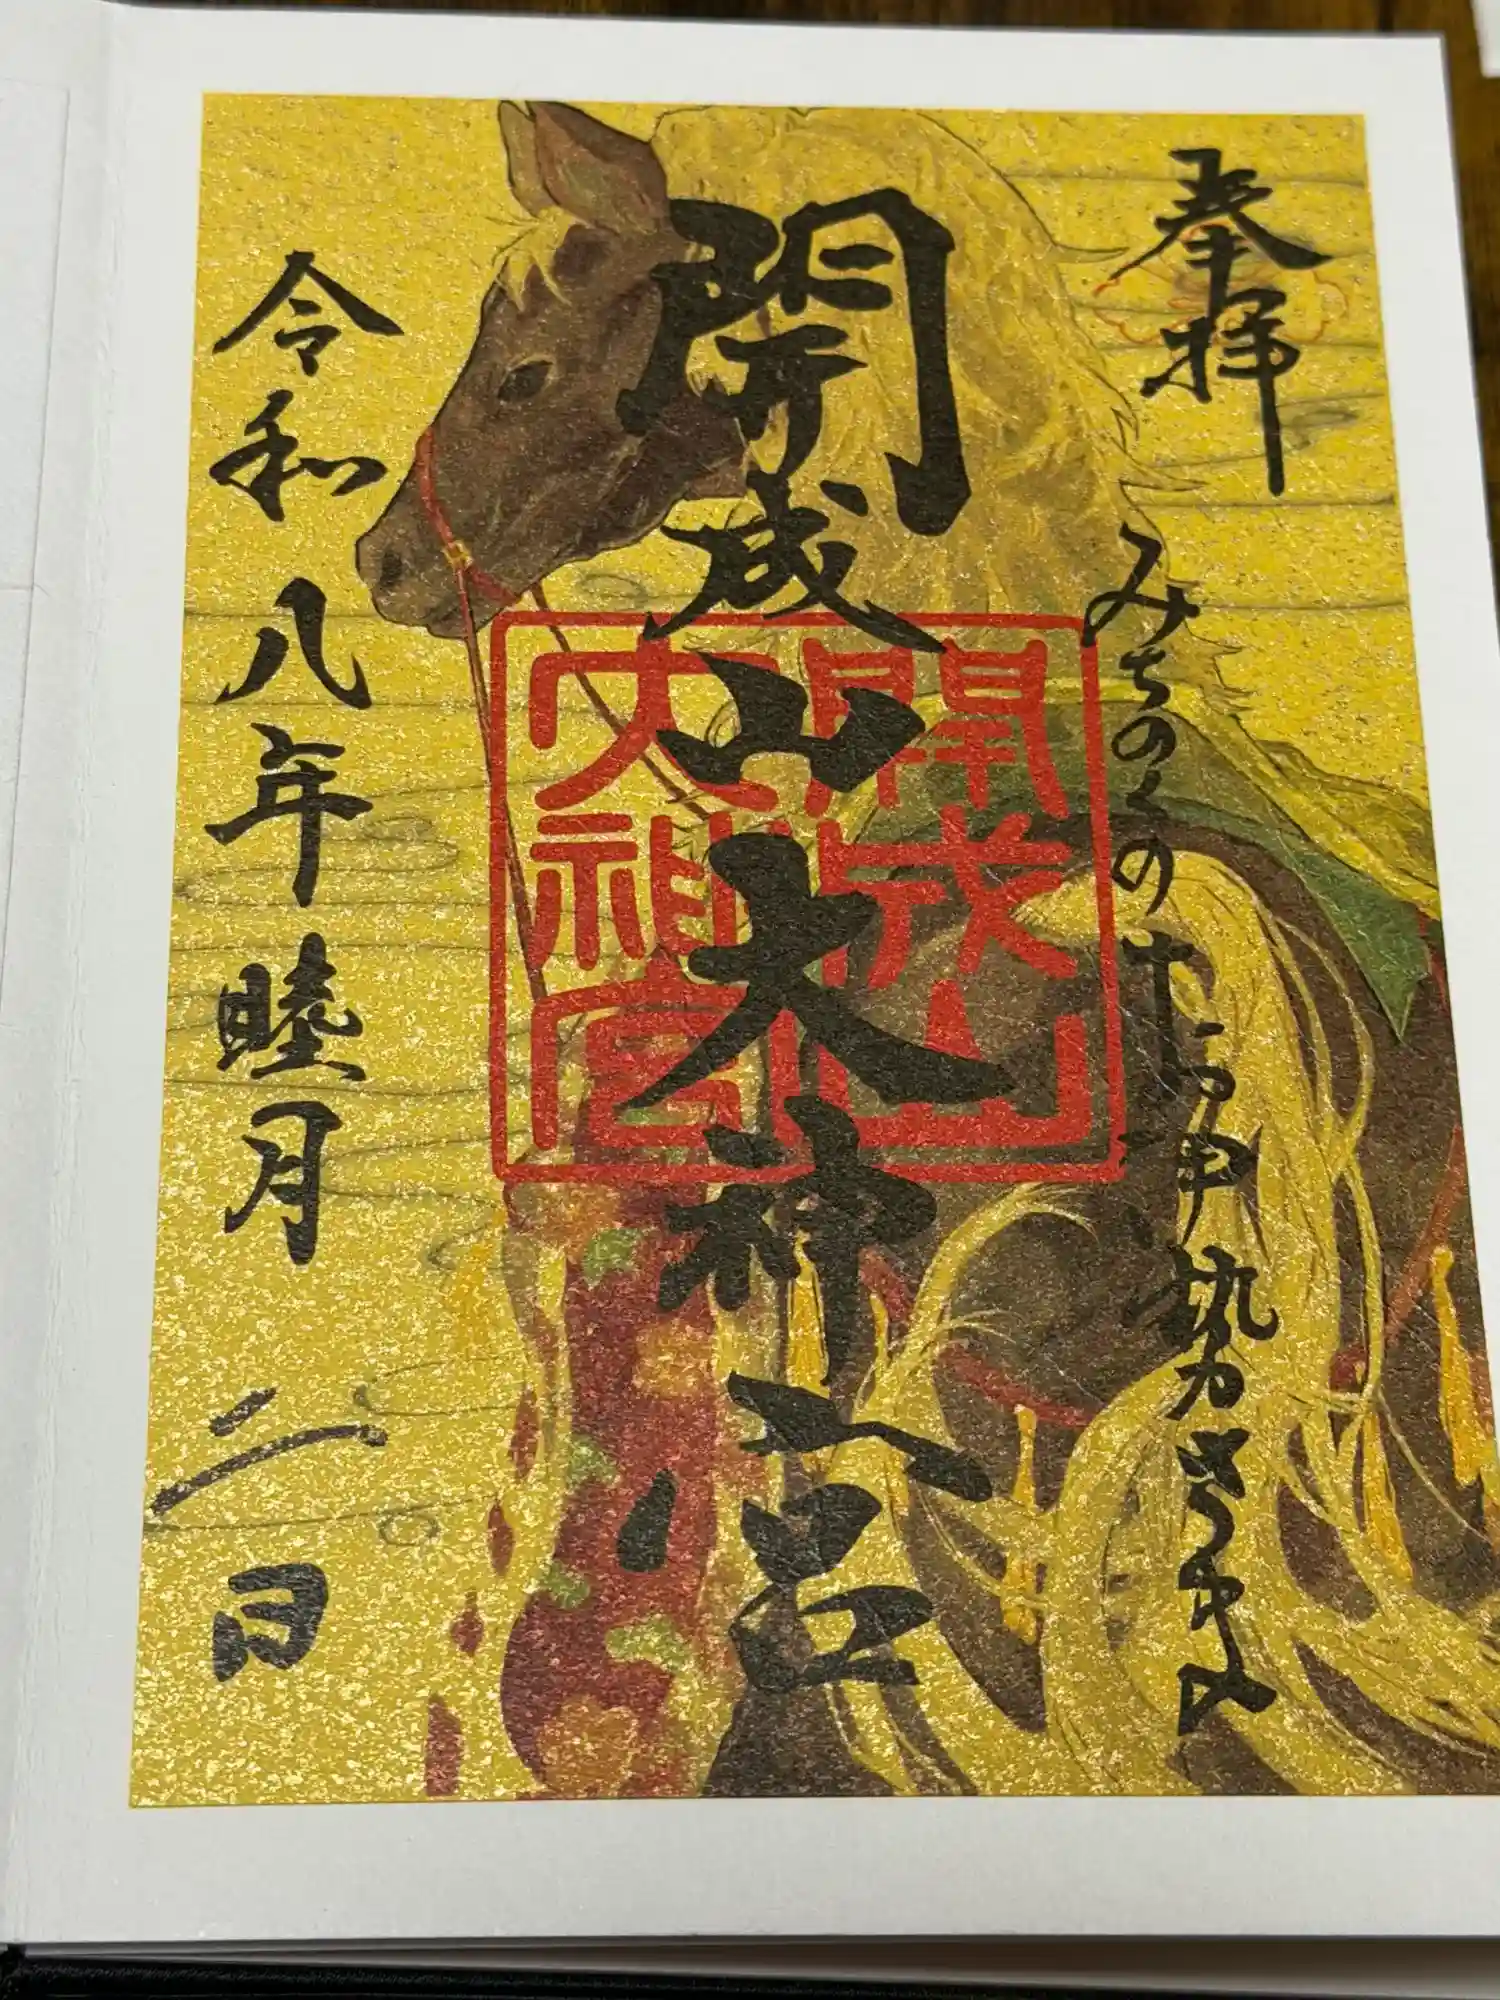 奉拝
みちのくの
開成山大神宮
開成山
大神宮
令和八年睦月二日